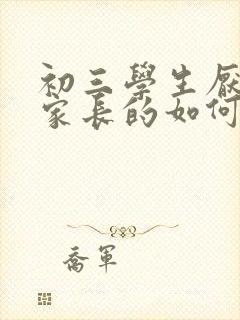 初三學生厭
家長的如何
喬軍